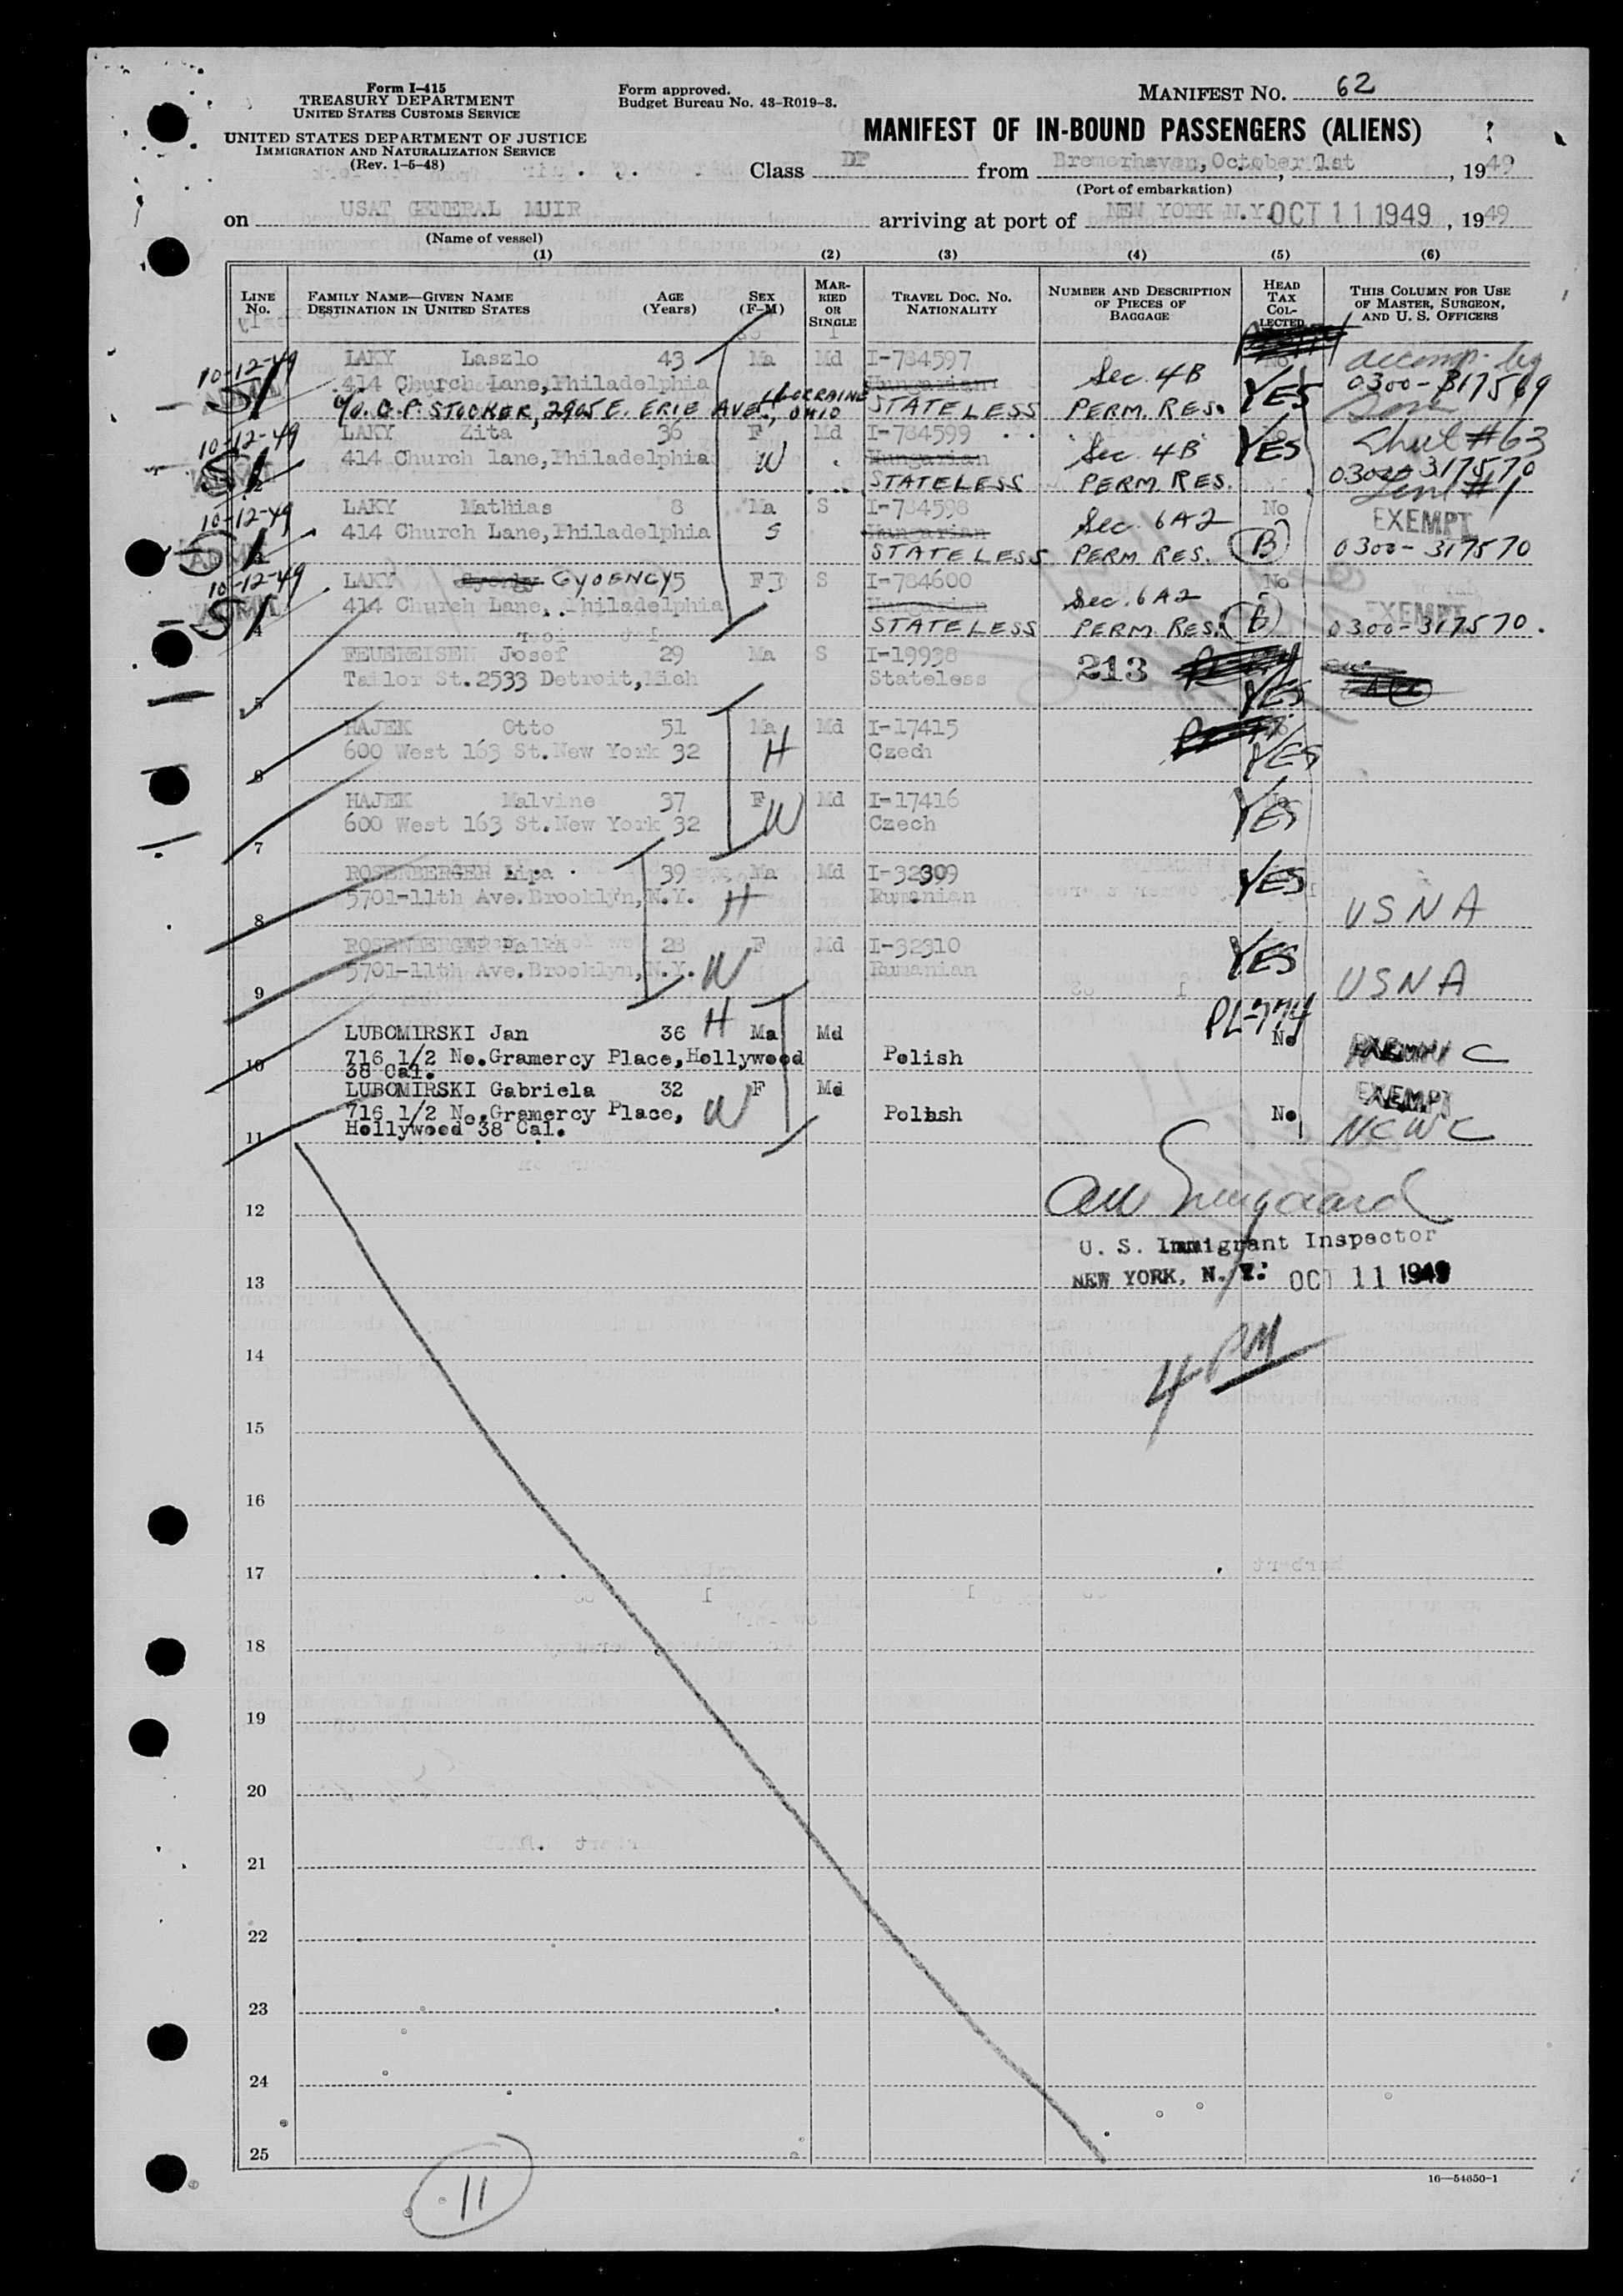 Form I-415
TREASURY DEPARTMENT
UNITED STATES CUSTOMS SERVICE
UNITED STATES DEPARTMENT OF JUSTICE
IMMIGRATION AND NATURALIZATION SERVICE
(Rev. 1-5-48)
Form approved.
Budget Bureau No. 43-R019-3.
MANIFEST NO. 62
MANIFEST OF IN-BOUND PASSENGERS (ALIENS)
Class DP from Bremerhaven, October 1st, 1949
(Port of embarkation)
on USAT GENERAL MUIR arriving at port of NEW YORK N.Y. OCT 11 1949, 1949
(Name of vessel)
(1) (2) (3) (4) (5) (6)
LINE NO. FAMILY NAME—GIVEN NAME DESTINATION IN UNITED STATES AGE (Years) SEX (F-M) MARRIED OR SINGLE TRAVEL DOC. NO. NATIONALITY NUMBER AND DESCRIPTION OF PIECES OF BAGGAGE HEAD TAX COLLECTED THIS COLUMN FOR USE OF MASTER, SURGEON, AND U. S. OFFICERS
10-12-49 LAKY Laszlo 43 Ma Md I-784597 Sec. 4B No accomp. by
414 Church Lane, Philadelphia Hungarian PERM. RES. YES 0300-317569
c/o. O.P. STOCKER, 2905 E. ERIE AVE., LORRAINE, OHIO STATELESS
10-12-49 LAKY Zita 36 F Md I-784599 Sec. 4B YES #63
2 414 Church lane, Philadelphia W Hungarian 0300-317570
STATELESS PERM. RES. #1
10-12-49 LAKY Mathias 8 Ma S I-784598 Sec. 6A2 No EXEMPT
3 414 Church Lane, Philadelphia S Hungarian B 0300-317570
STATELESS PERM RES.
10-12-49 LAKY Gyorgy GYOENGY 5 F S I-784600 Sec. 6A2 No EXEMPT
4 414 Church Lane, Philadelphia Hungarian B 0300-317570.
STATELESS PERM RES.
FEUEREISEN Josef 29 Ma S I-19938 213
5 Tailor St. 2533 Detroit, Mich Stateless YES
HAJEK Otto 51 Ma Md I-17415
6 600 West 163 St. New York 32 H Czech YES
HAJEK Malvine 37 F Md I-17416 No
7 600 West 163 St. New York 32 W Czech YES
ROSENBERGER Lipa 39 Ma Md I-32309 YES
8 5701-11th Ave. Brooklyn, N.Y. H Rumanian USNA
ROSENBERGER 28 F Md I-32310 YES
9 5701-11th Ave. Brooklyn, N.Y. W Rumanian USNA
LUBOMIRSKI Jan 36 H Ma Md PL-774 No
10 716 1/2 No. Gramercy Place, Hollywood Polish EXEMPT
38 Cal.
LUBOMIRSKI Gabriela 32 F Md EXEMPT
716 1/2 No. Gramercy Place, W Polish No NCWC
11 Hollywood 38 Cal.
12
U. S. Immigrant Inspector
13 NEW YORK, N. Y. OCT 11 1949
14
4 PM
15
16
17
18
19
20
21
22
23
24
25
16—54650-1
11